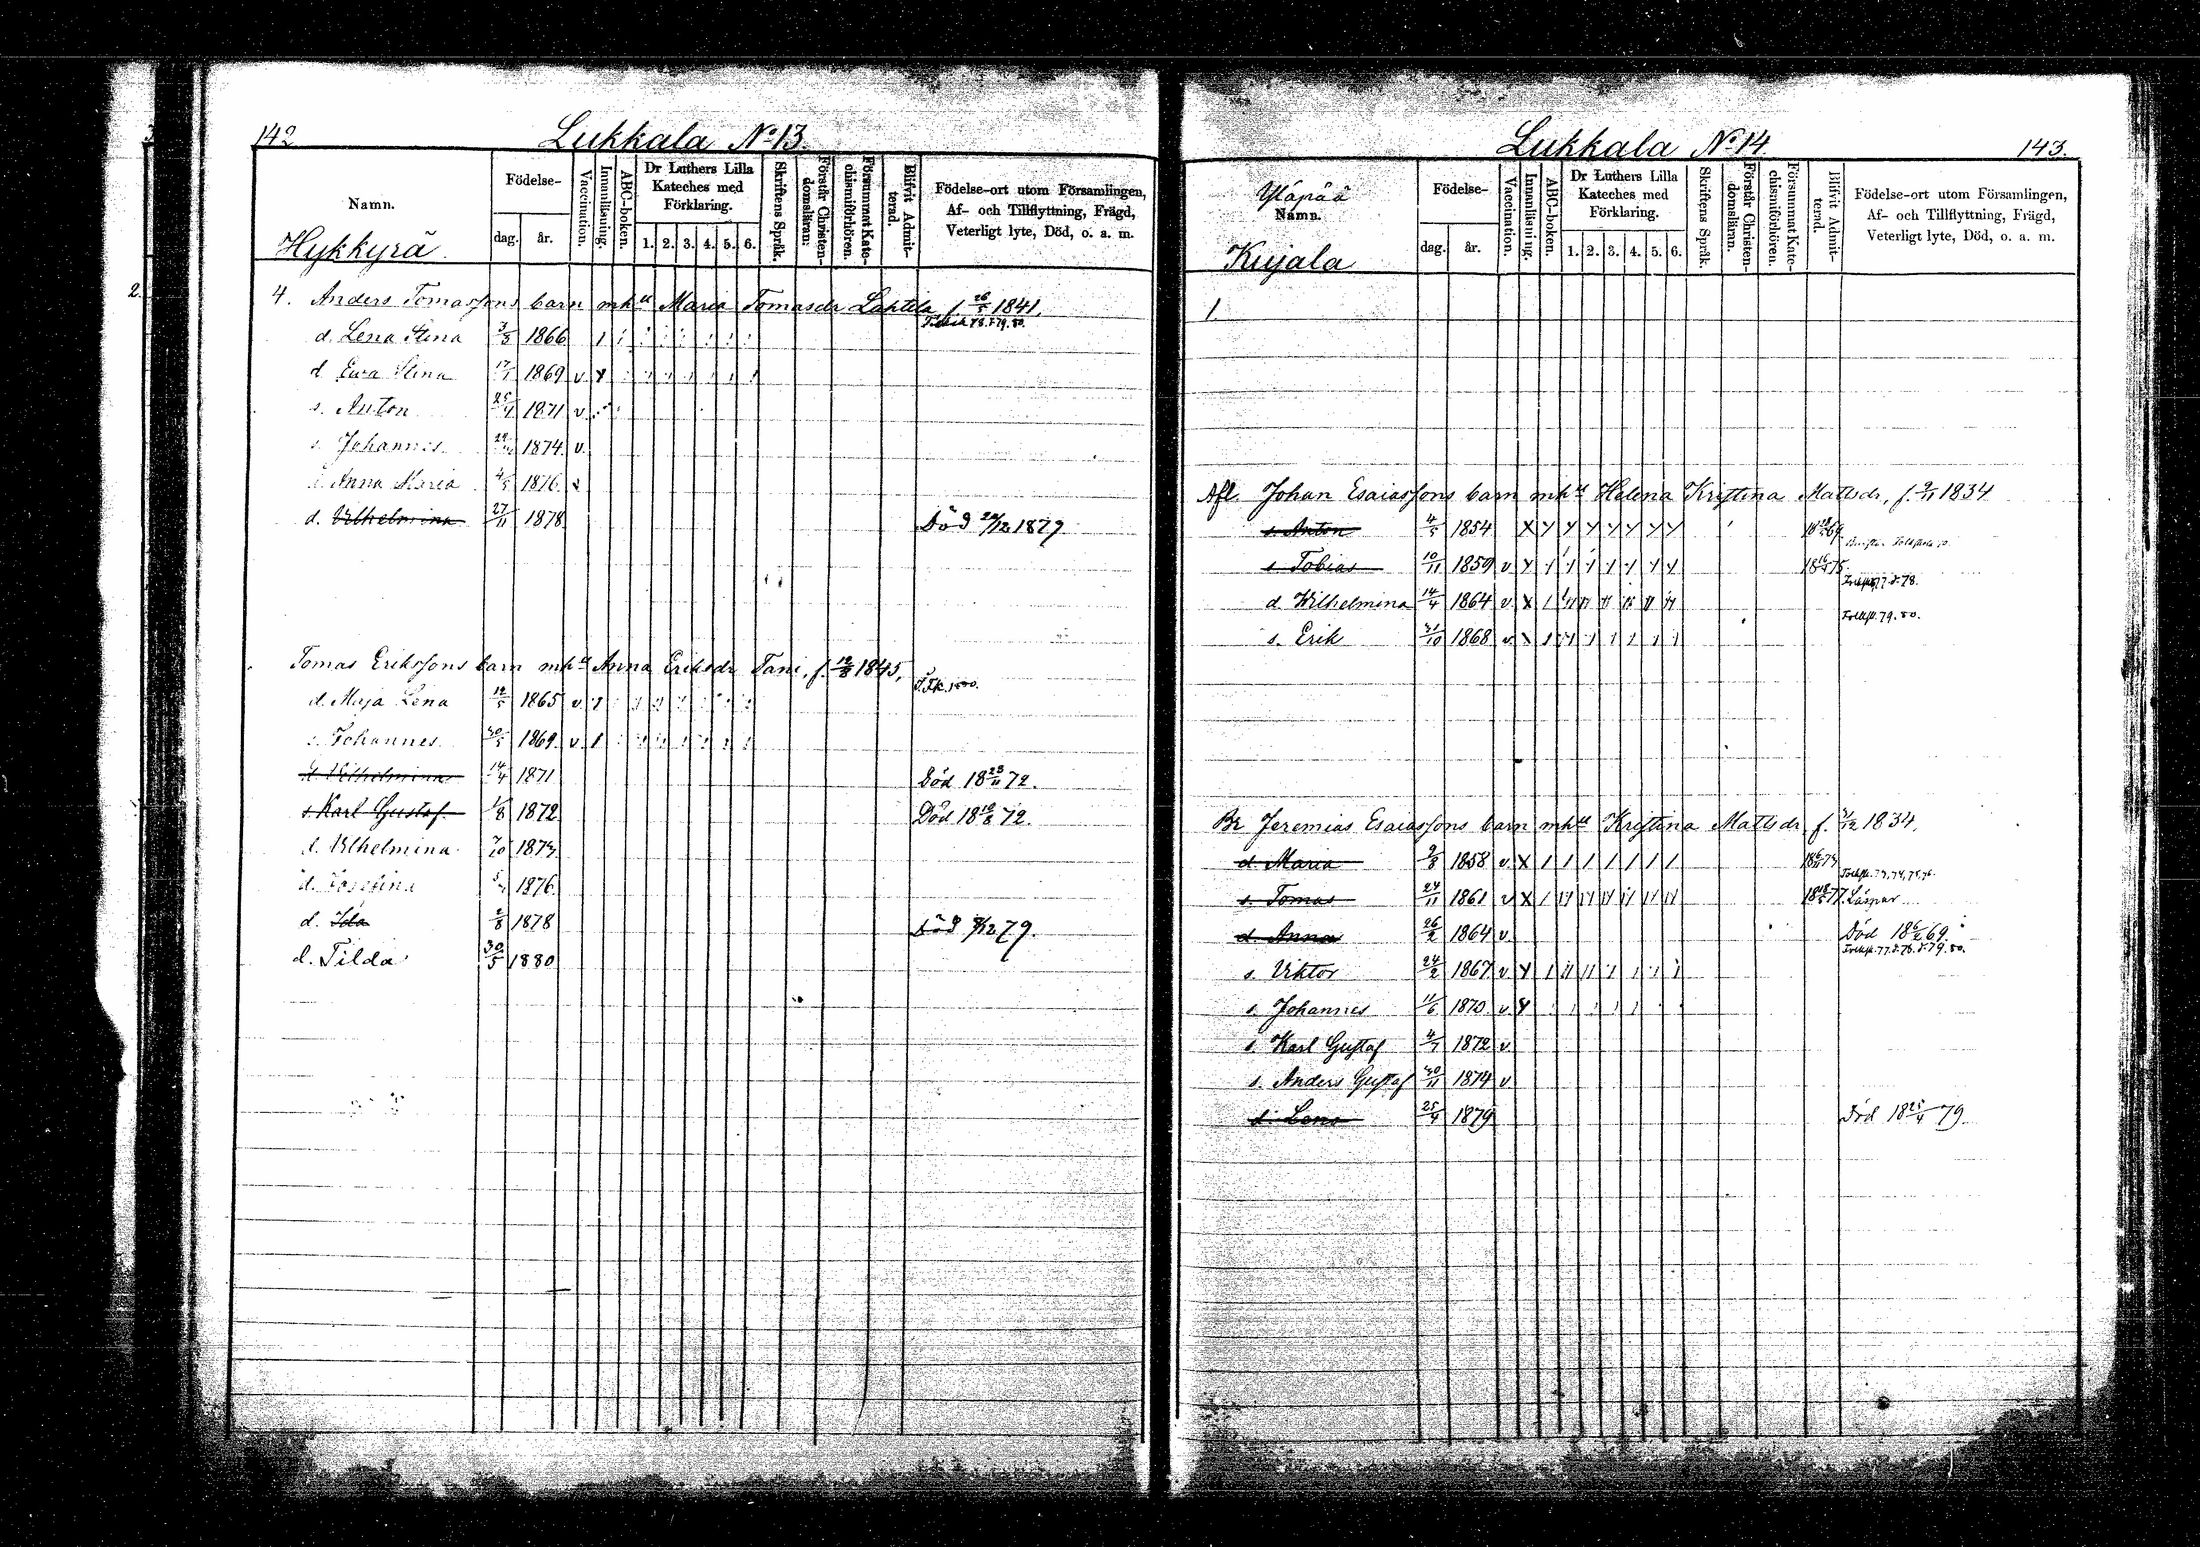 142
Lukkala No 13.
Namn.
Hykkyrä
Födelse-
dag. år.
Vaccination.
Innanläsning.
ABC-boken.
Dr Luthers Lilla Kateches med Förklaring.
1. 2. 3. 4. 5. 6.
Skriftens Språk.
Förstår Christendomsläran.
Försummat Katechismiförhören.
Blifvit Admitterad.
Födelse-ort utom Församlingen,
Af- och Tillflyttning, Frägd,
Veterligt lyte, Död, o. a. m.
4. Anders Tomassons barn mh Maria Tomasdr Lahtela, f. 26/5 1841.
d. Lena Stina 3/3 1866
d. Ewa Stina 1869 v
s. Anton 1871 v
s. Johannes 1874 v
Anna Maria 4/5 1876
d. Vilhelmina 27/11 1878 Död 1879
Tomas Erikssons barn mh Anna Eriksdr Tani, f. 1845,
d. Maja Lena 1865 v
s. Johannes 30/5 1869 v
d. Vilhelmina 14/4 1871 Död 18 23/11 72.
s. Karl Gustaf 1/8 1872 Död 18 10/8 72.
d. Vilhelmina 1873
d. Josefina 1876
d. Ida 2/8 1878 Död 79.
d. Tilda 30/5 1880
Lukkala No 14.
143.
Yläpää
Namn.
Kujala
Födelse-
dag. år.
Vaccination.
Innanläsning.
ABC-boken.
Dr Luthers Lilla Kateches med Förklaring.
1. 2. 3. 4. 5. 6.
Skriftens Språk.
Förstår Christendomsläran.
Försummat Katechismiförhören.
Blifvit Admitterad.
Födelse-ort utom Församlingen,
Af- och Tillflyttning, Frägd,
Veterligt lyte, Död, o. a. m.
1
Afl. Johan Esaiassons barn mh Helena Kristina Mattsdr, f. 9/11 1834
s. Anton 4/5 1854
s. Tobias 10/11 1859 v
d. Wilhelmina 14/4 1864 v
s. Erik 31/10 1868 v
Br Jeremias Esaiassons barn mh Kristina Mattsdr f. 1834.
d. Maria 9/8 1858 v
s. Tomas 24/11 1861 v
d. Anna 26/2 1864 v Död 18 6/2 69.
s. Viktor 24/2 1867 v
s. Johannes 11/6 1870 v
s. Karl Gustaf 1872 v
s. Anders Gustaf 30/11 1874 v
d. Lena 25/4 1879 Död 18 25/4 79.